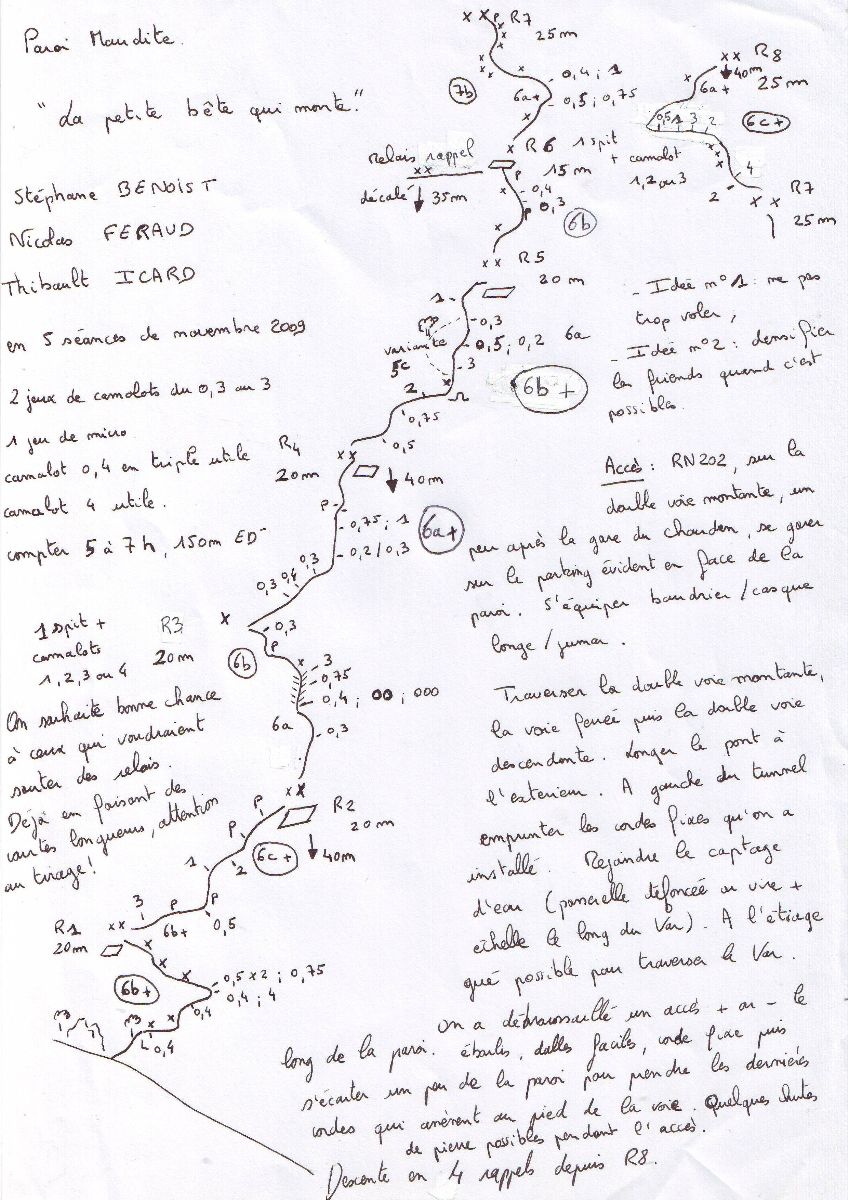 Paroi Maudite.
"La petite bête qui monte."
Stéphane BENOIST
Nicolas FERAUD
Thibault ICARD
en 5 séances de novembre 2009
2 jeux de camalots du 0,3 au 3
1 jeu de micro
camalot 0,4 en triple utile
camalot 4 utile.
compter 5 à 7h, 150m ED-
X X P R7
25m
7b
0,4 ; 1
6a+
0,5 ; 0,75
X X R8
40m
6a+
25m
0,5 1 3 2
6c+
4
2
R7
X X
25m
X R6 1 spit
15m + camalot
1, 2 ou 3
Relais rappel
XX
décalé 35m
P
0,4
P 0,3
6b
XX R5
20m
1
0,3
variante
5c
0,5 ; 0,2 6a
3
2
6b+
0,75
0,5
R4
20m
XX
40m
P
0,75 ; 1
6a+
0,2 / 0,3
0,3 0,4 0,3
1 spit + R3 X
camalots 20m
1, 2, 3 ou 4
0,3
P
6b
3
0,75
0,4 ; 00 ; 000
6a
0,3
XX
R2
20m
40m
P
P
P
1
2
6c+
3
P
P
6b+
0,5
R1 XX
20m
6b+
0,5 x 2 ; 0,75
0,4 ; 4
0,4
0,4
On souhaite bonne chance
à ceux qui voudraient
sauter des relais.
Déjà en faisant des
courtes longueurs, attention
au tirage!
- Idée n°1 : ne pas
trop voler,
- Idée n°2 : densifier
les friends quand c'est
possibles.
Accès : RN202, sur la
double voie montante, un
peu après la gare du chaudan, se garer
sur le parking évident en face de la
paroi. S'équiper baudrier / casque
longe / jumar.
Traverser la double voie montante,
la voie ferrée puis la double voie
descendante. Longer le pont à
l'exterieur. A gauche du tunnel
emprunter les cordes fixes qu'on a
installé. Rejoindre le captage
d'eau (passerelle défoncée ou vire +
echelle le long du Var). A l'étiage
gué possible pour traverser le Var.
On a débroussaillé un accès + ou - le
long de la paroi. éboulis, dalles faciles, corde fixe puis
s'écarter un peu de la paroi pour prendre les dernières
cordes qui amènent au pied de la voie. Quelques chutes
de pierre possibles pendant l'accès.
Descente en 4 rappels depuis R8.